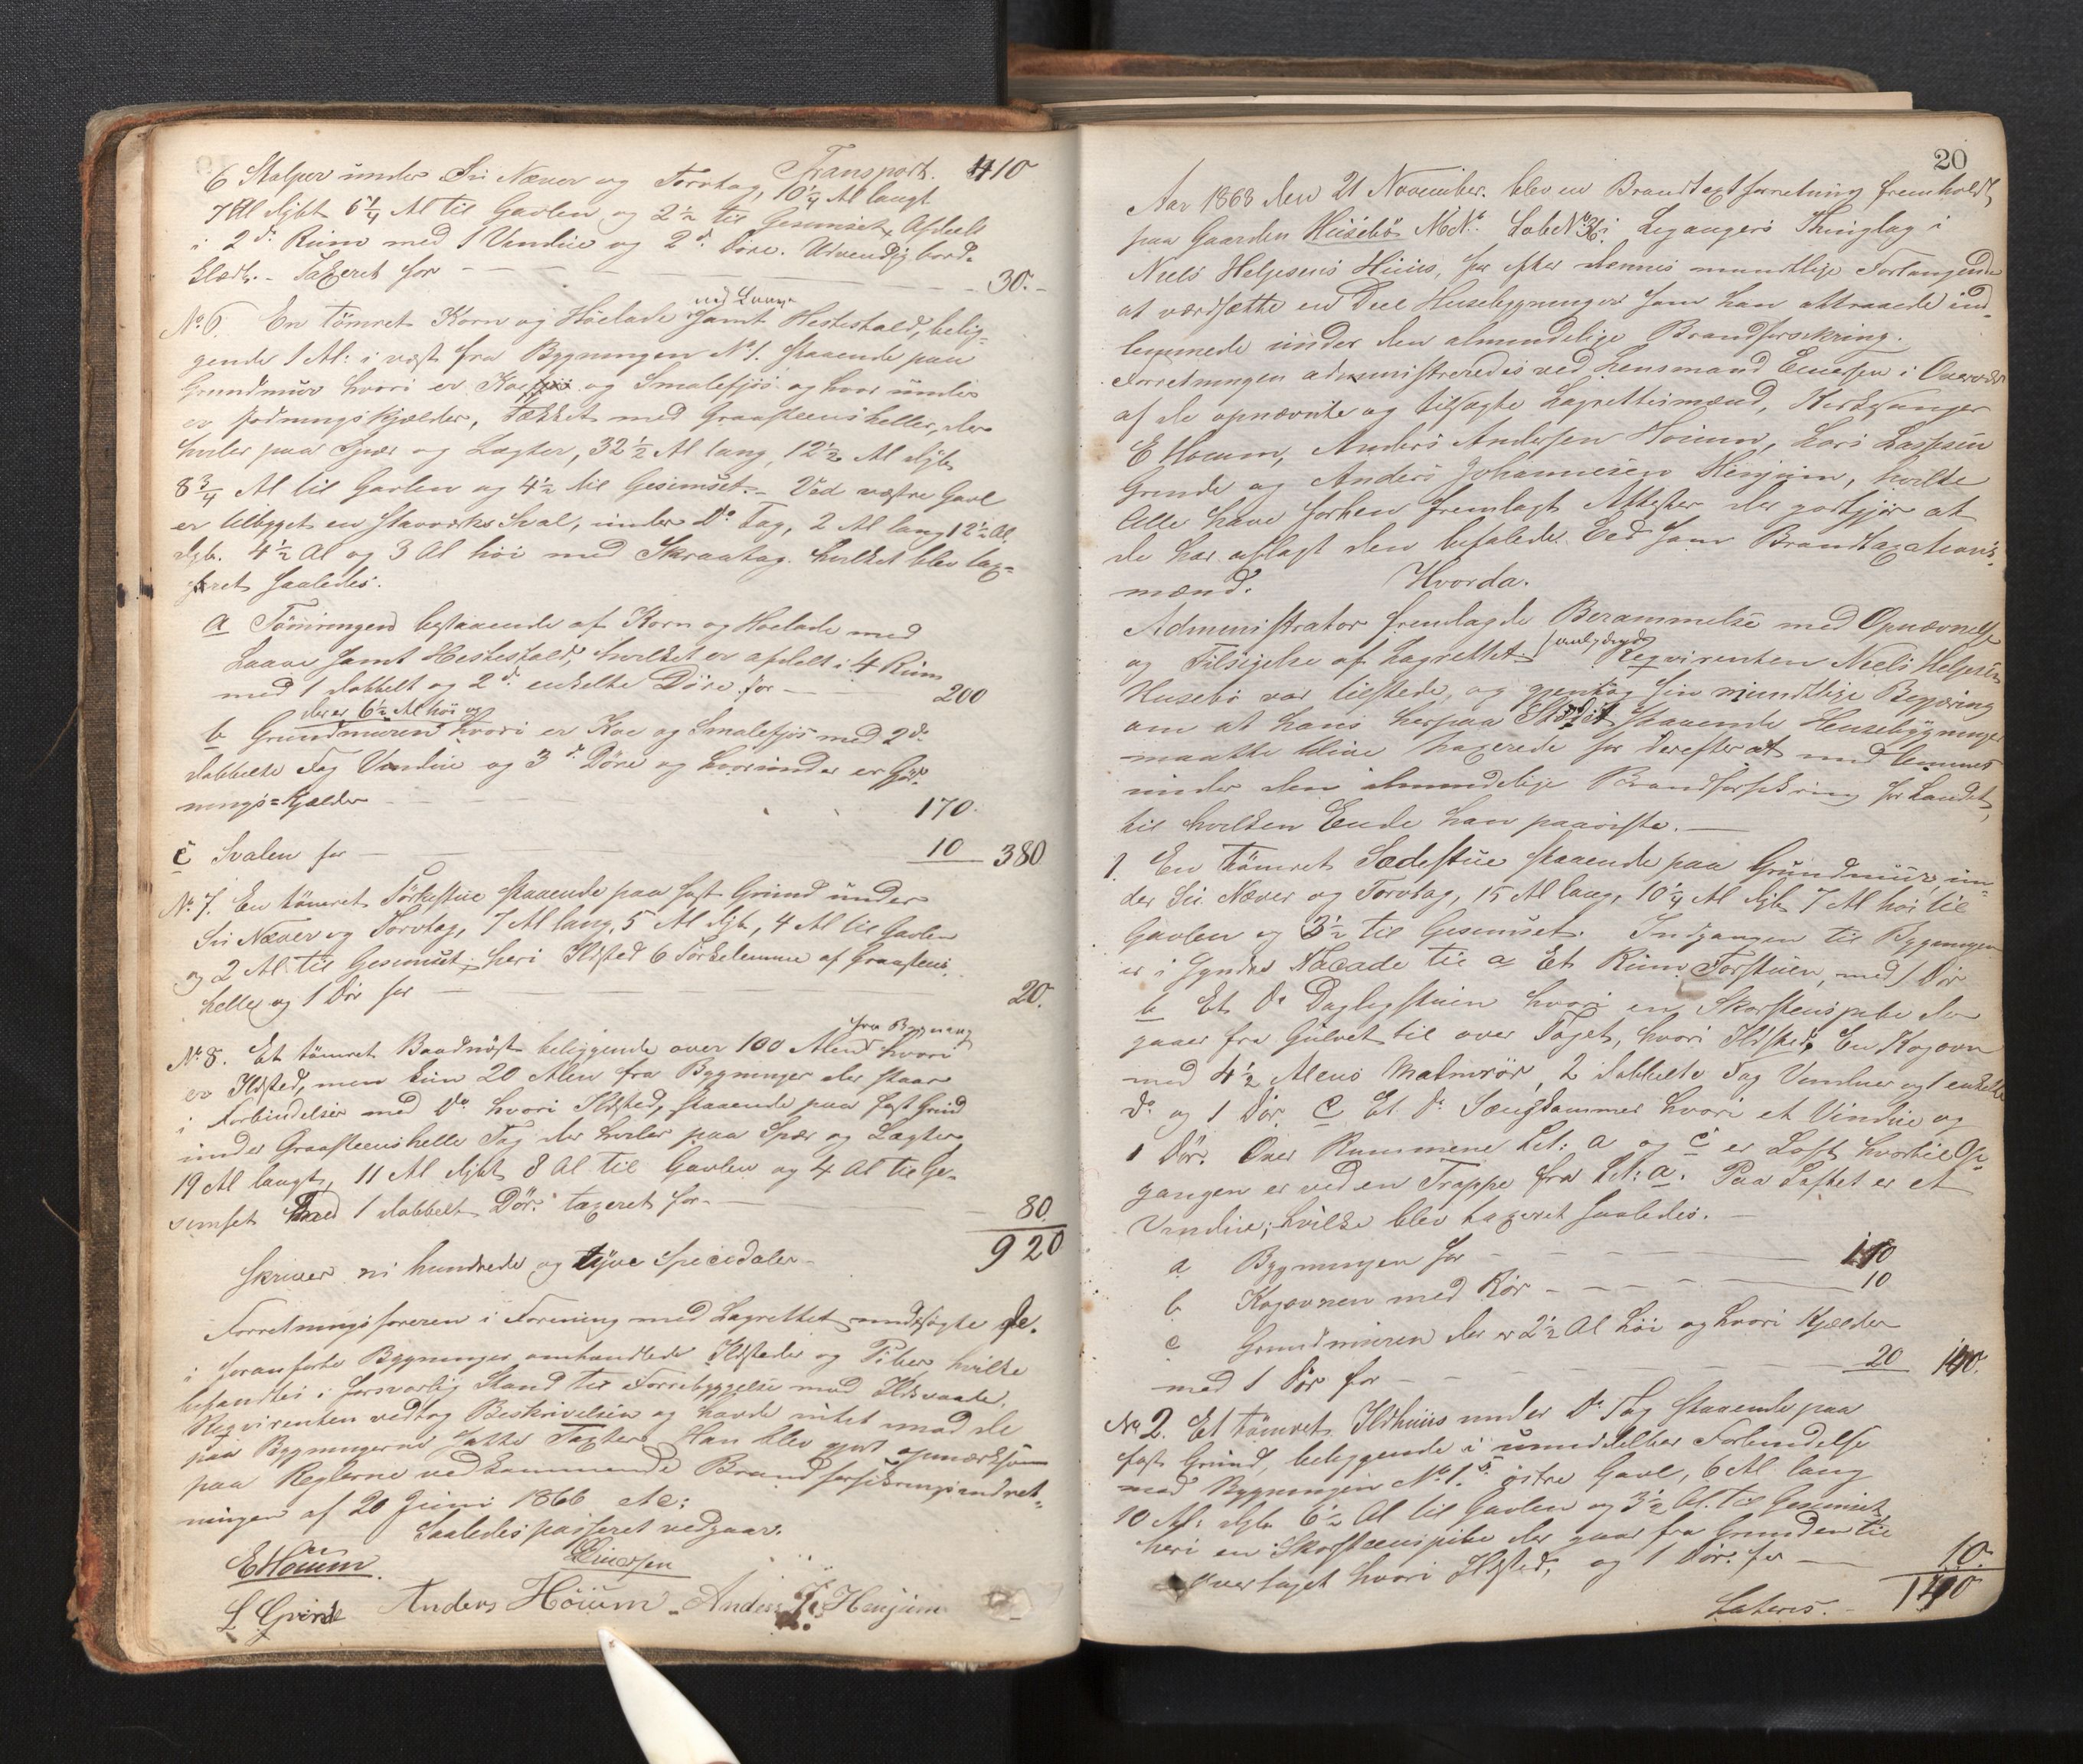 Transport. 410
6 Stolper under Sri Næver og Torvtag, 10 1/4 Al langt
7 Al dybt 6 1/4 Al til Gavlen og 2 1/2 til Gesimset, Afdeelt
i 2de Rum med 1 Vindue og 2de Döre. Udvendig bord-
klædt. - Taxeret for 30.-
No 6. En tömret Korn og Höelade ved Laave samt Hestestald, belig-
gende 1 Al: i vest fra Bygningen No 1. staaende paa
Grundmuur hvori er Koe og Smalefjös og hvor under
er Gjödningskjelder, Tækket med Graasteenshelle, der
hviler paa Spær og Lægter, 32 1/2 Al lang, 12 1/2 Al dyb
8 3/4 Al til Gavlen og 4 1/2 til Gesimset. - Ved vestre Gavl
er tilbygget en Stavverks Sval, under Do Tag, 2 Al lang 12 1/2 Al
dyb. 4 1/2 Al og 3 Al höi med Skraatag. hvilket blev tax-
eret saaledes.
a Tömringen bestaaende af Korn og Hoelade med
Laave samt Hestestald, hvilket er afdelt i 4 Rum
med 1 dobbelt og 2de enkelte Döre for 200
b Grundmuren der er 6 1/2 Al höi og hvori er Koe og Smalefjös med 2de
dobbelte Fag Vindue og 3de Döre og hvorunder er Gjöd-
nings-Kjelder 170.
c Svalen for 10 380
No 7. En tömret Törkestue staaende paa fast Grund under
Sri Næver og Torvtag, 7 Al lang, 5 Al dyb, 4 Al til Gavlen
og 2 Al til Gesimset, heri Ildsted 6 Törkelemme af Graasteens
helle og 1 Dör for 20.
No 8. Et tömret Baadnöst beliggende over 100 Alen fra Bygning hvori
er Ildsted, men kun 20 Alen fra Bygninger der staar
i Forbindelse med Do hvori Ildsted, staaende paa fast Grund
under Graasteenshelle Tag der hviler paa Spær og Lægter
19 Al langt, 11 Al dybt 8 Al til Gavlen og 4 Al til Ge-
simset med 1 dobbelt Dör. taxeret for 80.
920
skriver ni hundrede og tyve Speciedaler
Forretningsföreren i Forening med Lagrettet undersögte de
i foranförte Bygninger omhandlede Ildsteder og Piber, hvilke
befandtes i forsvarlig Stand til Forrebyggelse mod Ildsvaade.
Reqvirenten vedtog Beskrivelsen og havde intet mod de
paa Bygningerne satte Taxter. Han blev gjort opmærksom
paa Reglerne vedkommende Brandforsikringsindret-
ningen af 20 Juni 1866 etc:
Saaledes passeret vedgaar.
E Höium. Einersen
L Grinde Anders Höium - Anders Henjum
20
Aar 1868 den 21 November. blev en Brandtaxtforretning fremholdt
paa Gaarden Husebö M No Löbe No 36 i Leganger's Thinglag i
Niels Helgesens Huus, for efter dennes mundtlige Forlangende
at værdsætte en Deel Husebygninger som han attraaede ind-
lemmede under den almindelige Brandforsikring.
Forretningen administreredes ved Lensmand Einersen i Overvær
af de opnævnte og tilsagte Lagrettesmænd, Kirkesanger
E Höium, Anders Andersen Höium, Lars Lassesen
Grinde og Anders Johannesen Henjum, hvilke
alle have forhen fremlagt Attester der godtgjör at
de har aflagt den befalede Eed som Brandtaxations-
mænd. Hvorda.
Administrator fremlagde Berammelse med Opnævnelse
og Tilsigelse af Lagrettet. Reqvirenten Niels Helgesen
Husebö var tilstede, og gjentog sin mundtlige Begjæring
om at hans herpaa Stedet staaende Husebygninger
maatte blive taxerede for derefter at indlemmes
under den almindelige Brandforsikring for Landet,
til hvilken Ende han paaviste. -
1. En tömret Sædestue staaende paa Grundmuur, un-
der Sri Næver og Torvtag, 15 Al lang, 10 1/4 Al dyb 7 Al höi til
Gavlen og 3 1/2 til Gesimset. Indgangen til Bygningen
er i syndre Facade til a Et Rum Forstuen, med 1 Dör
b Et Do Daglgstuen hvori en Skorstenspibe der
gaaer fra Gulvet til over Taget, hvori Ildsted, En Kogovn
med 4 1/2 Alens Malmrör, 2 dobbelte Fag Vinduer og 1 enkelt
Do og 1 Dör. c Et Do Sengkammer hvori et Vindue og
1 Dör. Over Rummene Lit: a og c er Loft hvortil Op-
gangen er ved en Trappe fra Lit: a. Paa Loftet er et
Vindue; hvilke blev taxeret saaledes. -
a Bygningen for 110
b Kogovnen med Rör 10
c Grundmuren der er 2 1/2 Al höi og hvori Kjelder
med 1 Dör for 20 140.
No 2. Et tömret Ildhuus under Do Tag staaende paa
fast Grund, beliggende i umiddelbar Forbindelse
med Bygningen No 1.s östre Gavl, 6 Al lang
10 Al: dyb 6 1/2 Al til Gavlen og 3 1/2 Al. til Gesimset
heri en Skorsteenspibe der gaar fra Grunden til
over taget hvori Ildsted, og 1 Dör. for 10.
Lateris.